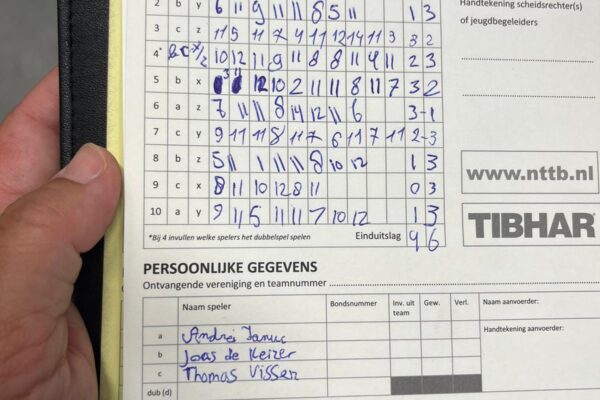 2 b y 6 11 9 11 11 8 5 11 1 3
Handtekening scheidsrechter(s)
of jeugdbegeleiders
3 c z 11 5 11 7 4 11 12 14 11 3 3 2
4* y/z 10 12 11 9 11 8 8 11 4 11 2 3
5 b x 12 10 2 11 11 8 11 7 3 2
6 a z 7 11 11 8 14 12 11 6 3-1
7 c y 9 11 11 8 11 7 6 11 7 11 2-3
8 b z 5 11 1 11 11 8 10 12 1 3
9 c x 8 11 10 12 8 11 0 3
10 a y 9 11 5 11 11 7 10 12 1 3
*Bij 4 invullen welke spelers het dubbelspel spelen Einduitslag 4 6
www.nttb.nl
TIBHAR
PERSOONLIJKE GEGEVENS
Ontvangende vereniging en teamnummer
Naam speler Bondsnummer Inv. uit team Gew. Verl. Naam aanvoerder:
Handtekening aanvoerder:
a Andrei
b Joas de Keizer
c Thomas Vissen
dub (d)